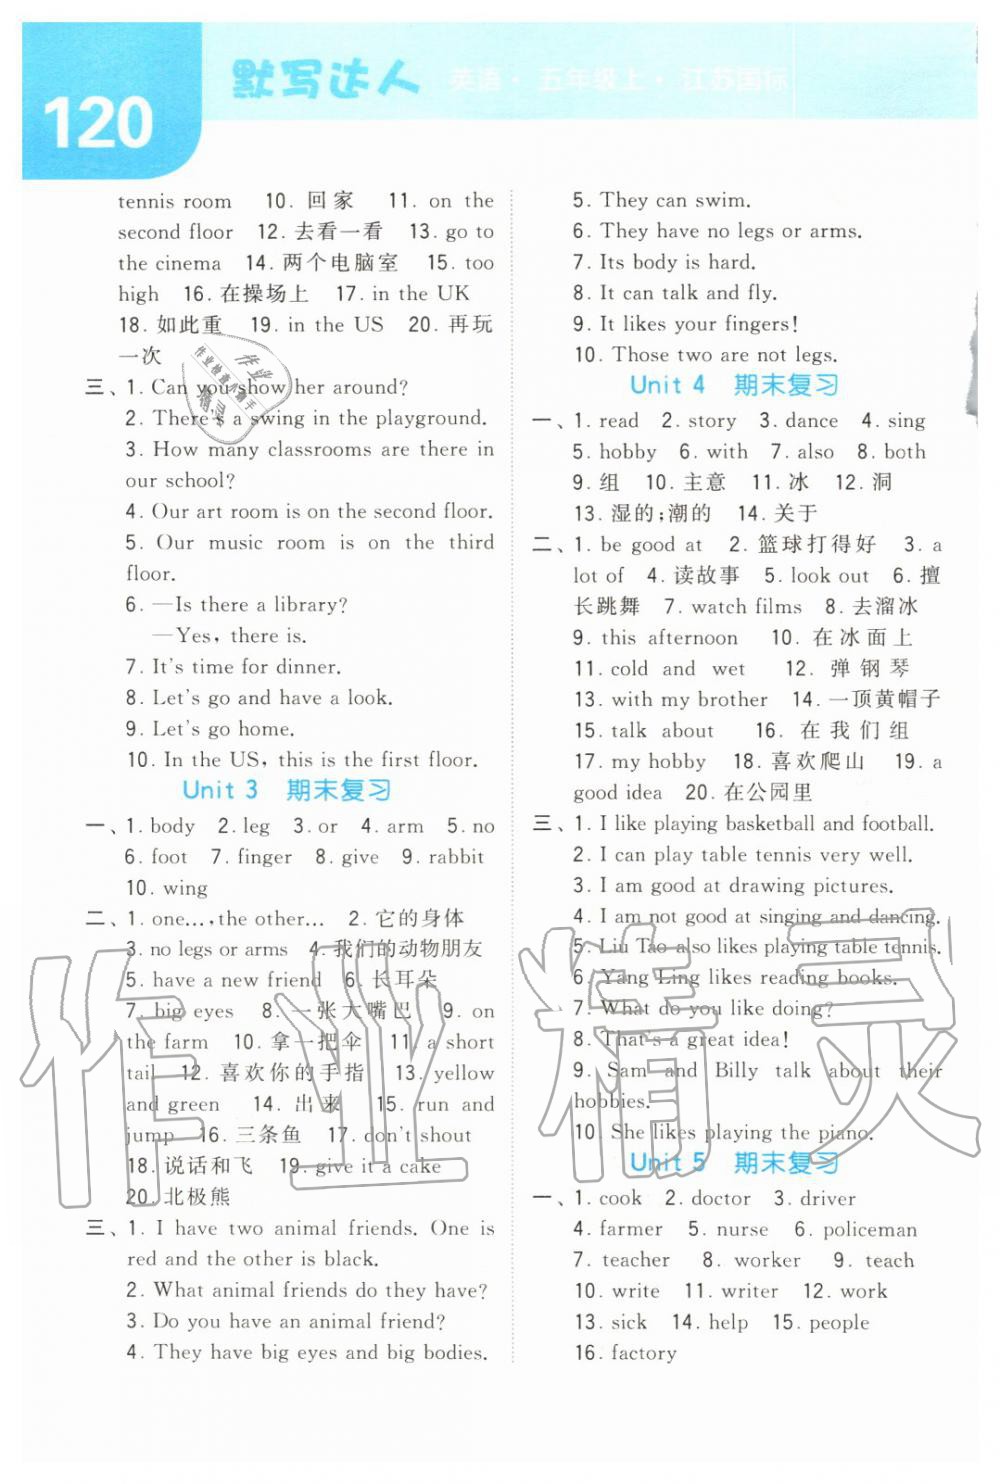 120
默写达人 英语·五年级上·江苏国标
tennis room 10. 回家 11. on the
second floor 12. 去看一看 13. go to
the cinema 14. 两个电脑室 15. too
high 16. 在操场上 17. in the UK
18. 如此重 19. in the US 20. 再玩
一次
三、1. Can you show her around?
2. There's a swing in the playground.
3. How many classrooms are there in
our school?
4. Our art room is on the second floor.
5. Our music room is on the third
floor.
6. —Is there a library?
—Yes, there is.
7. It's time for dinner.
8. Let's go and have a look.
9. Let's go home.
10. In the US, this is the first floor.
Unit 3 期末复习
一、1. body 2. leg 3. or 4. arm 5. no
6. foot 7. finger 8. give 9. rabbit
10. wing
二、1. one..., the other... 2. 它的身体
3. no legs or arms 4. 我们的动物朋友
5. have a new friend 6. 长耳朵
7. big eyes 8. 一张大嘴巴 9. on
the farm 10. 拿一把伞 11. a short
tail 12. 喜欢你的手指 13. yellow
and green 14. 出来 15. run and
jump 16. 三条鱼 17. don't shout
18. 说话和飞 19. give it a cake
20. 北极熊
三、1. I have two animal friends. One is
red and the other is black.
2. What animal friends do they have?
3. Do you have an animal friend?
4. They have big eyes and big bodies.
5. They can swim.
6. They have no legs or arms.
7. Its body is hard.
8. It can talk and fly.
9. It likes your fingers!
10. Those two are not legs.
Unit 4 期末复习
一、1. read 2. story 3. dance 4. sing
5. hobby 6. with 7. also 8. both
9. 组 10. 主意 11. 冰 12. 洞
13. 湿的;潮的 14. 关于
二、1. be good at 2. 篮球打得好 3. a
lot of 4. 读故事 5. look out 6. 擅
长跳舞 7. watch films 8. 去溜冰
9. this afternoon 10. 在冰面上
11. cold and wet 12. 弹钢琴
13. with my brother 14. 一顶黄帽子
15. talk about 16. 在我们组
17. my hobby 18. 喜欢爬山 19. a
good idea 20. 在公园里
三、1. I like playing basketball and football.
2. I can play table tennis very well.
3. I am good at drawing pictures.
4. I am not good at singing and dancing.
5. Liu Tao also likes playing table tennis.
6. Yang Ling likes reading books.
7. What do you like doing?
8. That's a great idea!
9. Sam and Billy talk about their
hobbies.
10. She likes playing the piano.
Unit 5 期末复习
一、1. cook 2. doctor 3. driver
4. farmer 5. nurse 6. policeman
7. teacher 8. worker 9. teach
10. write 11. writer 12. work
13. sick 14. help 15. people
16. factory
作业精灵